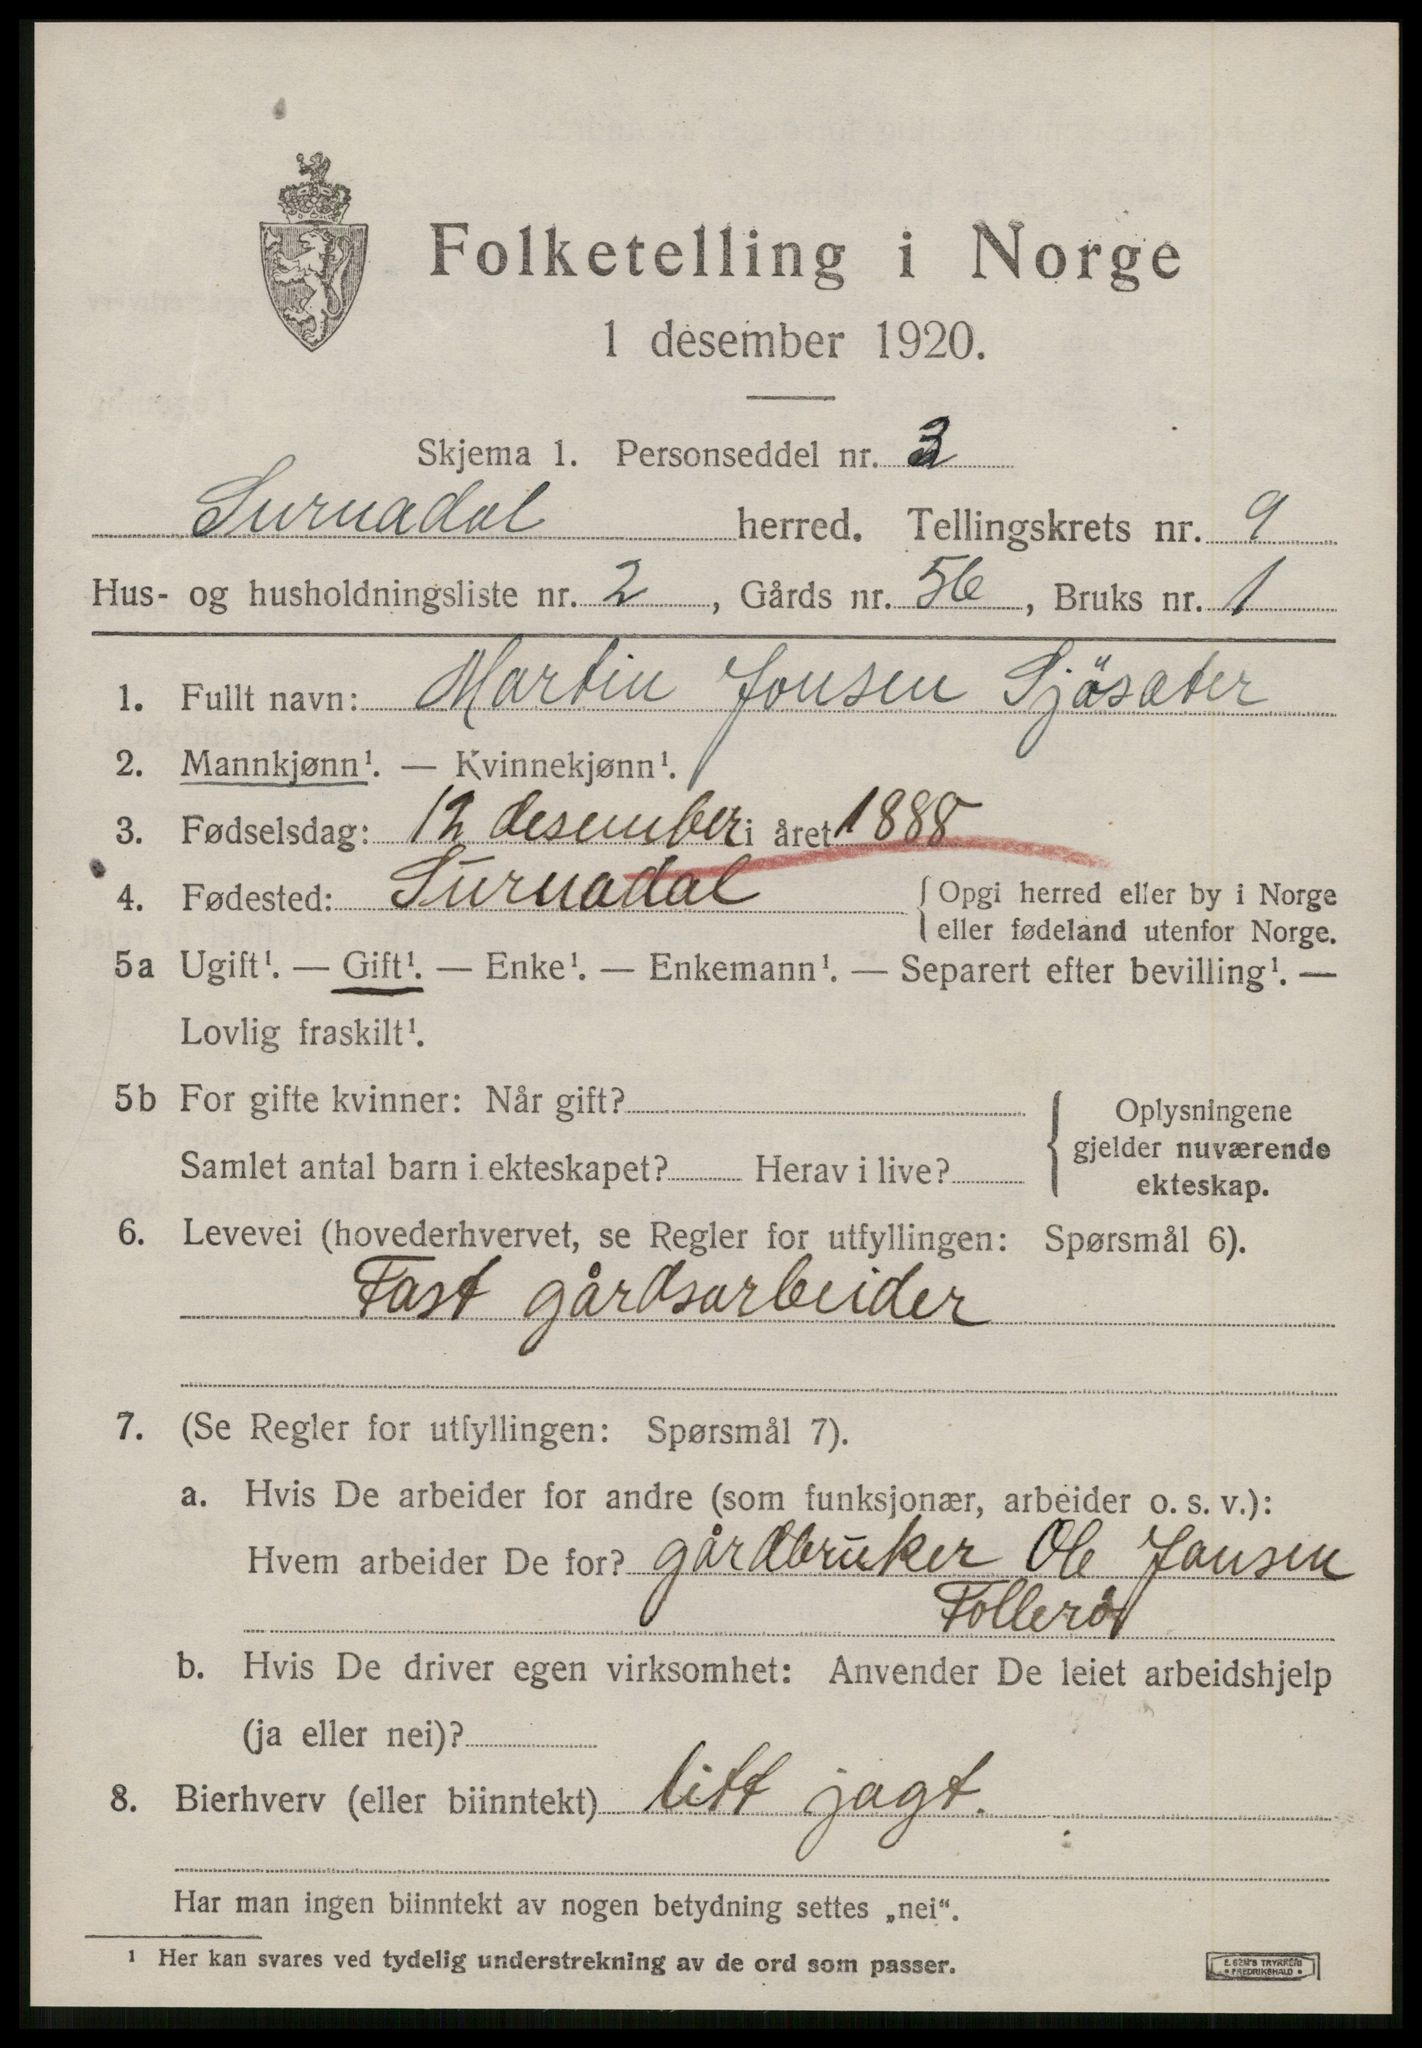 Folketelling i Norge
1 desember 1920.
Skjema 1. Personseddel nr. 3
Surnadal herred. Tellingskrets nr. 9
Hus- og husholdningsliste nr. 2, Gårds nr. 56, Bruks nr. 1
1. Fullt navn: Martin Jonsen Sjösæter
2. Mannkjønn¹. — Kvinnekjønn¹.
3. Fødselsdag: 12 desember i året 1888
4. Fødested: Surnadal { Opgi herred eller by i Norge
eller fødeland utenfor Norge.
5a Ugift¹. — Gift¹. — Enke¹. — Enkemann¹. — Separert efter bevilling¹. —
Lovlig fraskilt¹.
5b For gifte kvinner: Når gift?
Samlet antal barn i ekteskapet? Herav i live?
{ Oplysningene
gjelder nuværende
ekteskap.
6. Levevei (hovederhvervet, se Regler for utfyllingen: Spørsmål 6).
Fast gårdsarbeider
7. (Se Regler for utfyllingen: Spørsmål 7).
a. Hvis De arbeider for andre (som funksjonær, arbeider o. s. v.):
Hvem arbeider De for? gårdbruker Ole Jonsen
Follerø
b. Hvis De driver egen virksomhet: Anvender De leiet arbeidshjelp
(ja eller nei)?
8. Bierhverv (eller biinntekt) litt jagt.
Har man ingen biinntekt av nogen betydning settes „nei“.
¹ Her kan svares ved tydelig understrekning av de ord som passer.
E. SEM'S TRYKKERI
• FREDRIKSHALD •